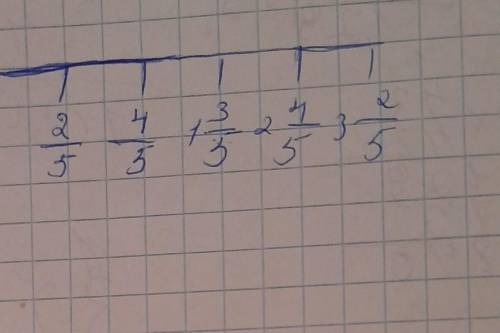 2/5 4/5 1 3/5 2 4/5 3 2/5